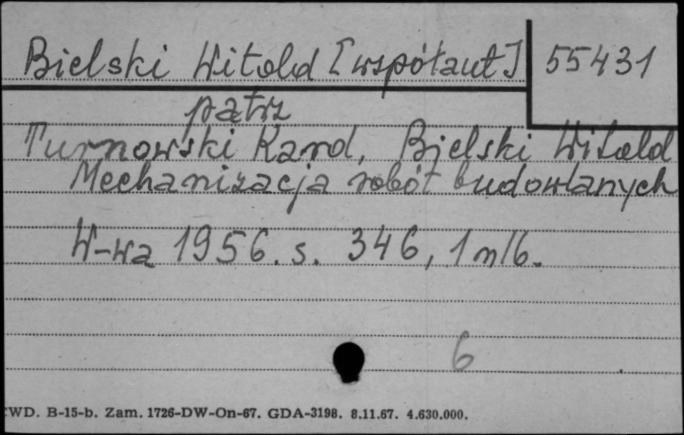 Bielski Witold [współaut] 55431
patrz
Turnowski Karol, Bielski Witold
Mechanizacja robót budowlanych
W-wa 1956. s. 346, 1 nlb.
6
WD. B-15-b. Zam. 1726-DW-On-67. GDA-3198. 8.11.67. 4.630.000.